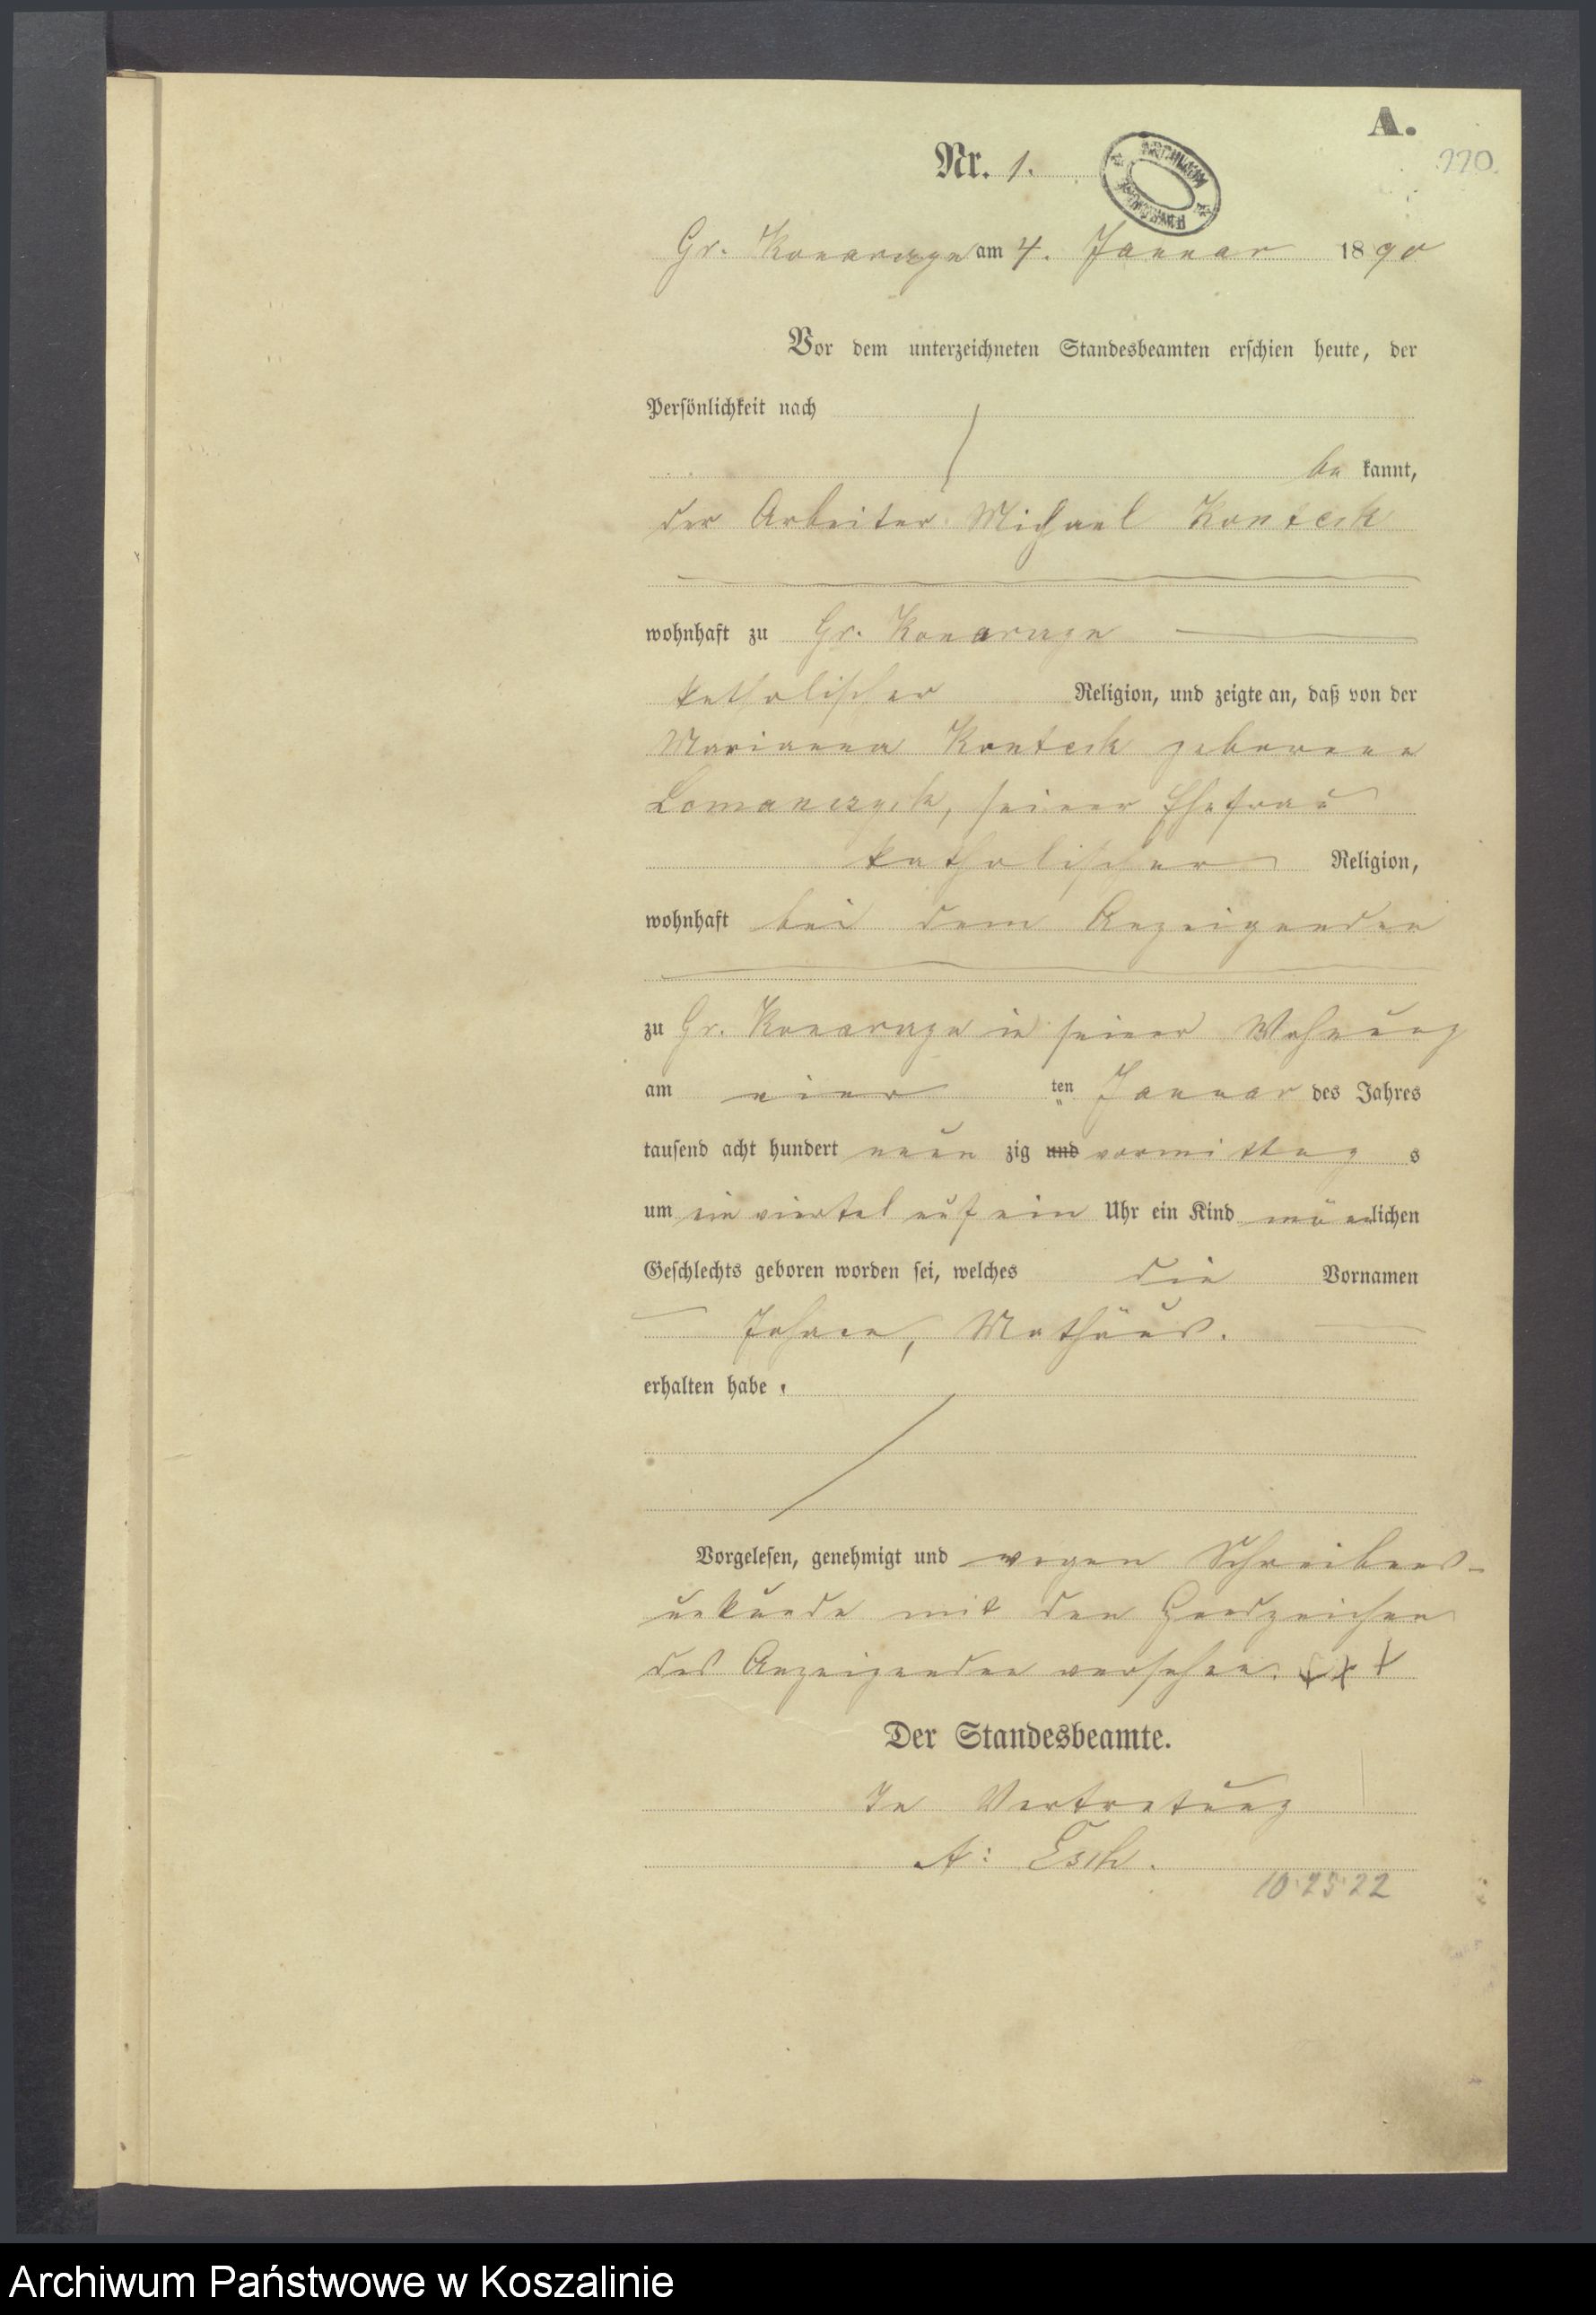 A.
Nr. 1.
ARCHIWUM
220.
Gr. Konarczyn am 4. Januar 1890
Vor dem unterzeichneten Standesbeamten erschien heute, der
Persönlichkeit nach
be kannt,
der Arbeiter Michael Konteck
wohnhaft zu Gr. Konarczyn
katholischer Religion, und zeigte an, daß von der
Marianna Konteck geborene
Lomanczyk, seiner Ehefrau
katholischer Religion,
wohnhaft bei dem Anzeigenden
zu Gr. Konarczyn in seiner Wohnung
am vier ten Januar des Jahres
tausend acht hundert neun zig und vormittag s
um ein viertel auf ein Uhr ein Kind männlichen
Geschlechts geboren worden sei, welches die Vornamen
Johann, Mathäus.
erhalten habe.
Vorgelesen, genehmigt und wegen Schreibens-
unkunde mit den Handzeichen
des Anzeigenden versehen. + + +
Der Standesbeamte.
In Vertretung
A: Esch.
10.25.22
Archiwum Państwowe w Koszalinie